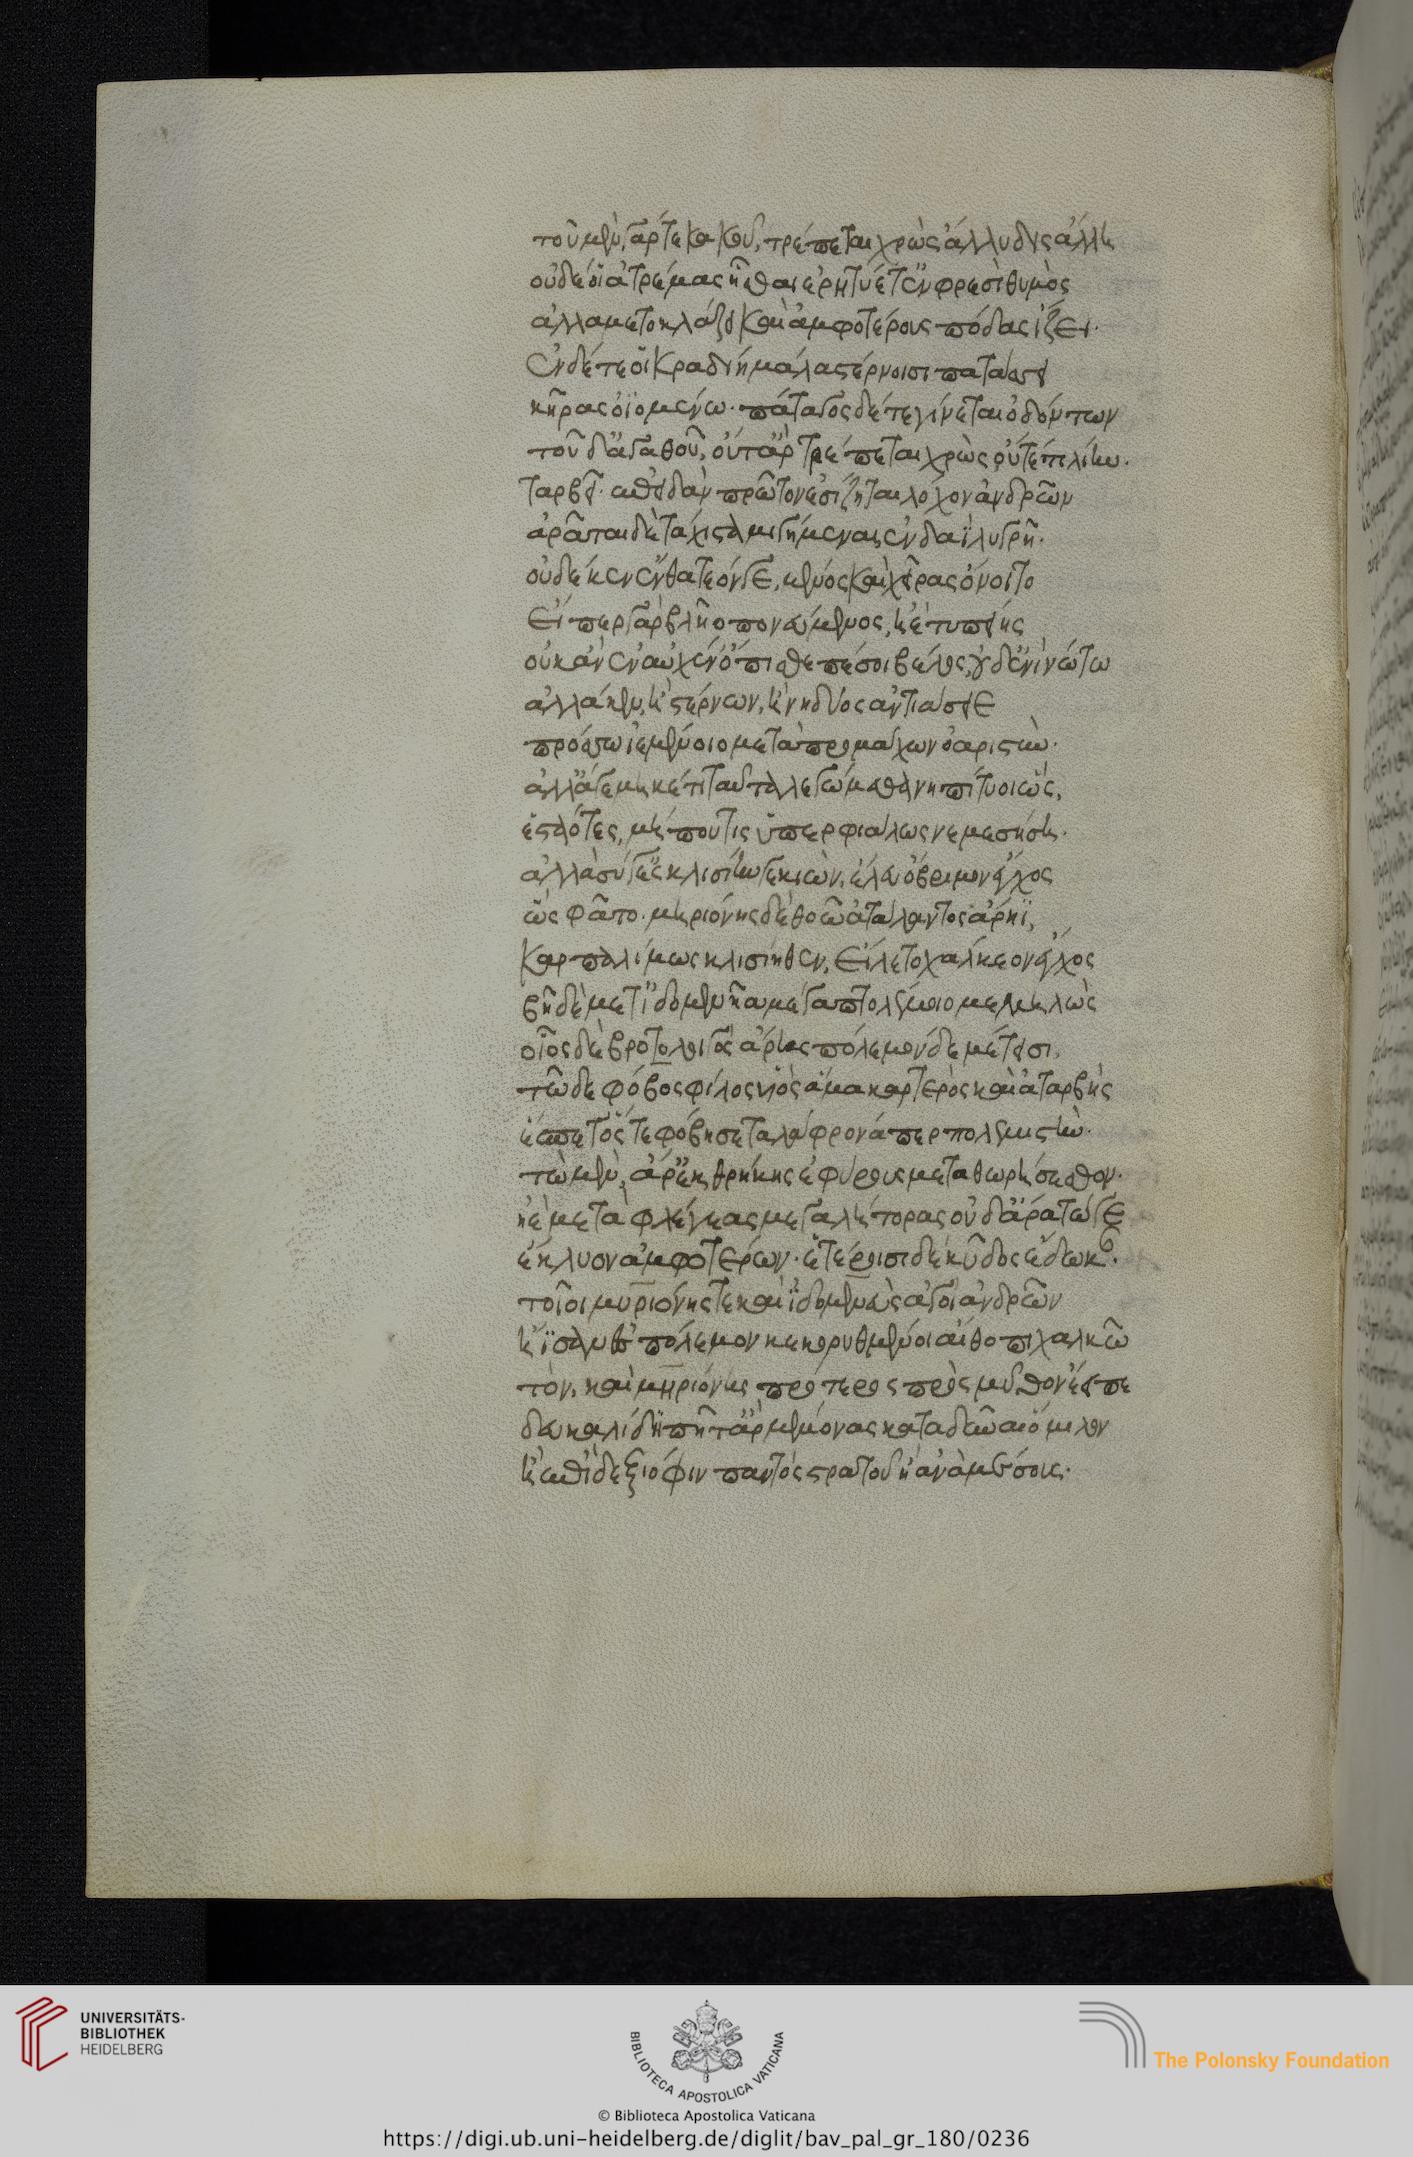 τοῦ μὲν γάρ τε κακοῦ, τρέπεται χρὼς ἄλλυδις ἄλλη
οὐδέ οἱ ἀτρέμας ἧσθαι ἐρητύετ ἐν φρεσὶ θυμὸς
ἀλλα μετοκλάζει καὶ ἀμφοτέρους πόδας ἵζει·
ἐν δέ τε οἱ κραδίη μάλα στέρνοισι πατάσσει
κῆρας ὀϊομένω· πάταγος δέ τε γίνεται ὀδόντων
τοῦ δ ἀγαθοῦ, οὔτ ἂρ τρέπεται χρὼς οὔτέ τι λίην·
ταρβεῖ· ἐπειδὰν πρῶτον ἐσίζηται λόχον ἀνδρῶν
ἀρᾶται δὲ τάχιστα μιγήμεναι ἐν δαῒ λυγρῆ·
οὐδέ κεν ἔνθα τεόν γε, μένος καὶ χεῖρας ὄνοιτο
εἴ περ γὰρ βλῆο πονεύμενος, ἠὲ τυπείης
οὐκ ἂν ἐν αὐχέν ὄπισθε πέσοι βέλος, οὐδ ἐνὶ νώτω
ἀλλά κεν, ἢ στέρνων, ἢ νηδύος ἀντιάσειε
πρόσσω ἱεμένοιο μετὰ προμάχων ὀαριστύν·
ἀλλ ἄγε μηκέτι ταῦτα λεγώμεθα νηπίτυοι ὥς,
ἑσταότες, μή που τις ὑπερφιάλως νεμεσήση·
ἀλλὰ σύ γε ἐς κλισίην γε κιὼν, ἕλευ ὄβριμον ἔγχος
ὣς φάτο· μηριόνης δὲ θοῶ ἀτάλαντος ἄρηϊ,
καρπαλίμως κλισίηθεν, εἵλετο χαλκεον ἔγχος
βῆ δὲ μετ ἰδομενῆα μέγα πτολέμοιο μεμηλὼς
οἷος δὲ βροτολοιγὸς ἄρης πόλεμόνδε μέτεισι,
τῶ δε φόβος φίλος υἱὸς ἅμα καρτερὸς καὶ ἀταρβὴς
ἕσπετο ὅς τε φόβησε ταλάφρονά περ πολεμιστήν·
τὼ μὲν, ἄρ ἐκ θρήκης ἐφύρους μέτα θωρήσσεσθον·
ἠὲ μετὰ φλέγυας μεγαλήτορας οὐδ ἄρα τώ γε
ἔκλυον ἀμφοτέρων· ἑτέροισι δὲ κῦδος ἔδωκαν·
τοῖοι μυριόνης τε καὶ ἰδομενεὺς ἀγοὶ ἀνδρῶν
ἤϊσαν ἐς πόλεμον κεκορυθμένοι αἴθοπι χαλκῶ
τὸν, καὶ μηριόνης πρότερος πρὸς μῦθον ἔειπε
δευκαλίδη πῆ τ ἂρ μέμονας καταδῦναι ὅμιλον
ἢ ἐπὶ δεξιόφιν παντὸς στρατοῦ ἢ ἀνὰ μέσσους·
UNIVERSITÄTS-
BIBLIOTHEK
HEIDELBERG
BIBLIOTECA APOSTOLICA VATICANA
The Polonsky Foundation
© Biblioteca Apostolica Vaticana
https://digi.ub.uni-heidelberg.de/diglit/bav_pal_gr_180/0236